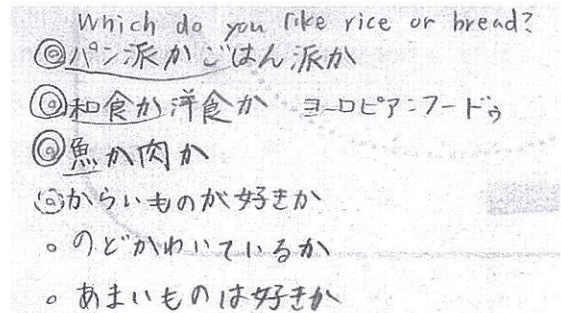 Which do you like rice or bread?
◎パン派かごはん派か
◎和食か洋食か ヨーロピアンフードゥ
◎魚か肉か
◎からいものが好きか
。のどかわいているか
。あまいものは好きか